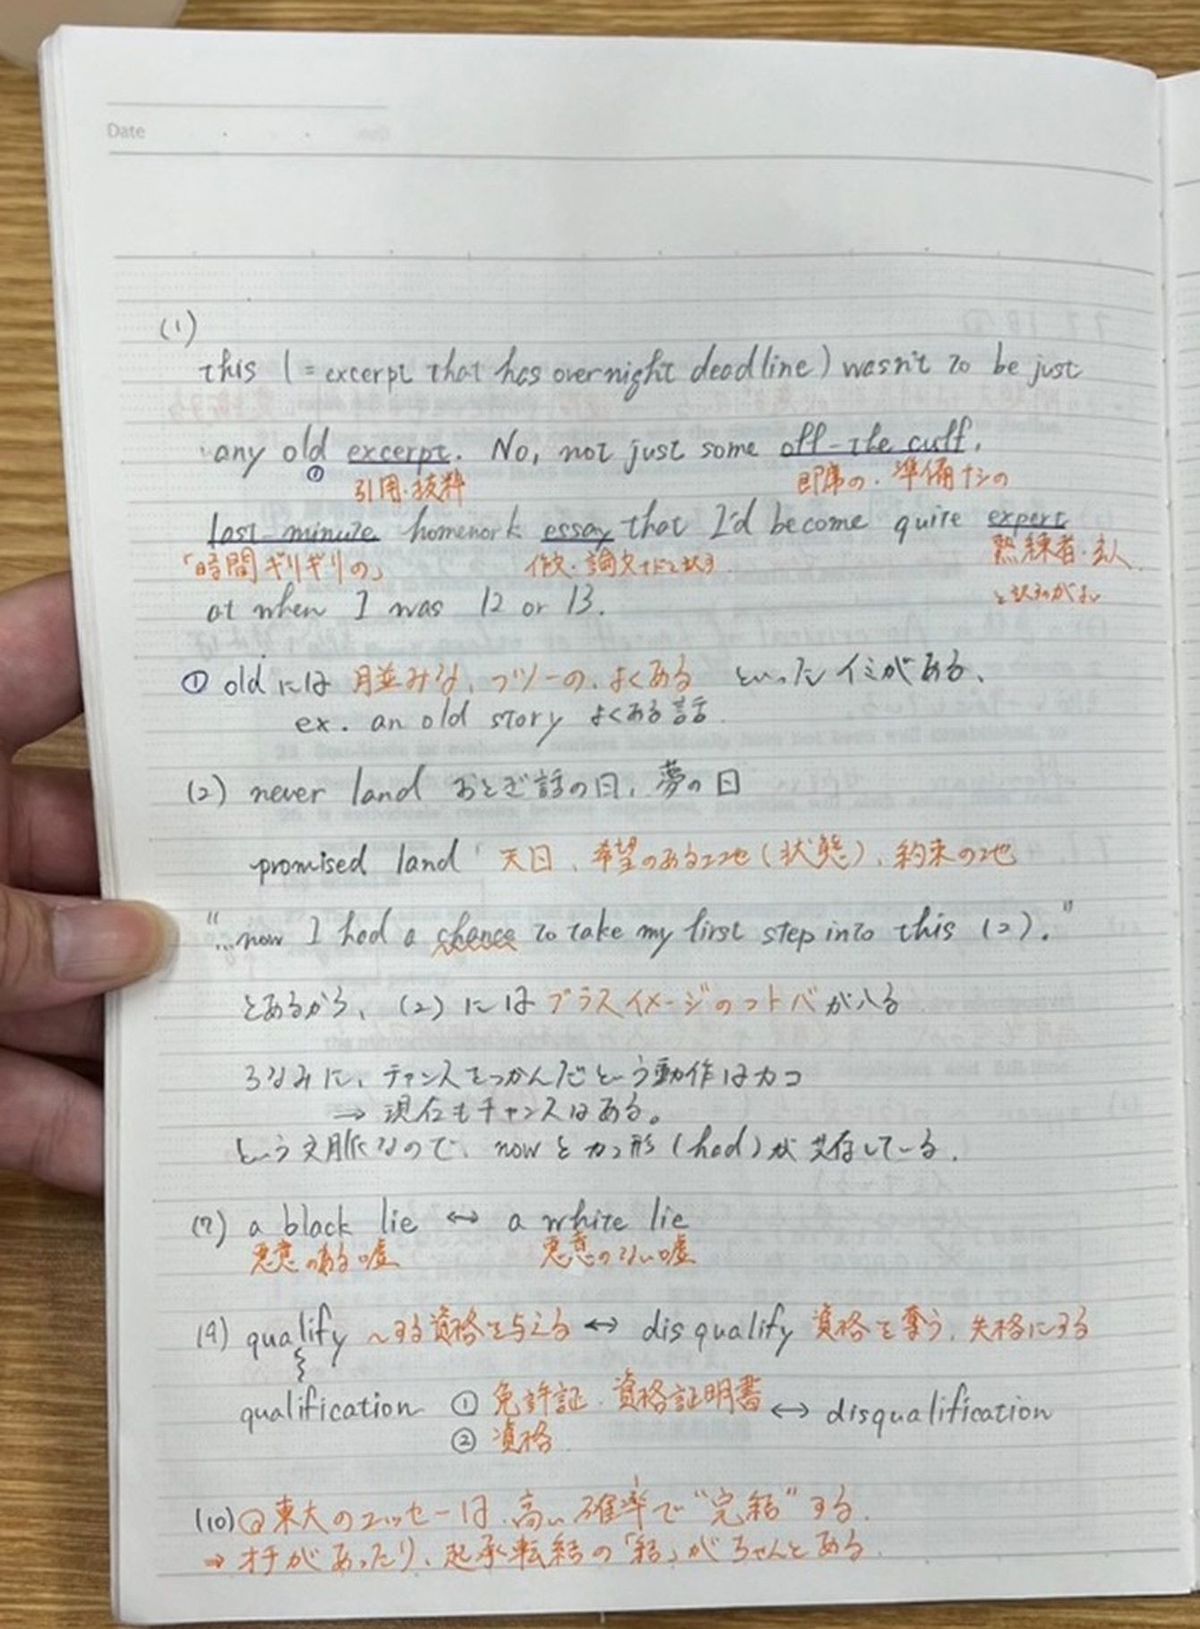 Date
(1)
this (= excerpt that has overnight deadline) wasn't to be just
any old excerpt. No, not just some off-the cuff,
① 引用・抜粋 即席の・準備ナシの
last minute homework essay that I'd become quite expert
「時間ギリギリの」 作文・論文などと訳す 熟練者・玄人
at when I was 12 or 13. と訳すがよい
① old には 月並みな、フツーの、よくある といったイミがある、
ex. an old story よくある話
(2) never land おとぎ話の国、夢の国
promised land 天国、希望のある土地(状態)、約束の地
"...now I had a chance to take my first step into this (2)."
とあるから、(2)には プラスイメージのコトバが入る
ちなみに、チャンスをつかんだという動作はカコ
⇒ 現在もチャンスはある。
という文脈なので、now とカコ形(had)が共存している.
(7) a black lie ↔ a white lie
悪意のある嘘 悪意のない嘘
(9) qualify 〜する資格を与える ↔ disqualify 資格を奪う、失格にする
qualification ① 免許証・資格証明書 ↔ disqualification
② 資格
(10) 東大のエッセーは、高い確率で"完結"する.
⇒ オチがあったり、起承転結の「結」がちゃんとある.